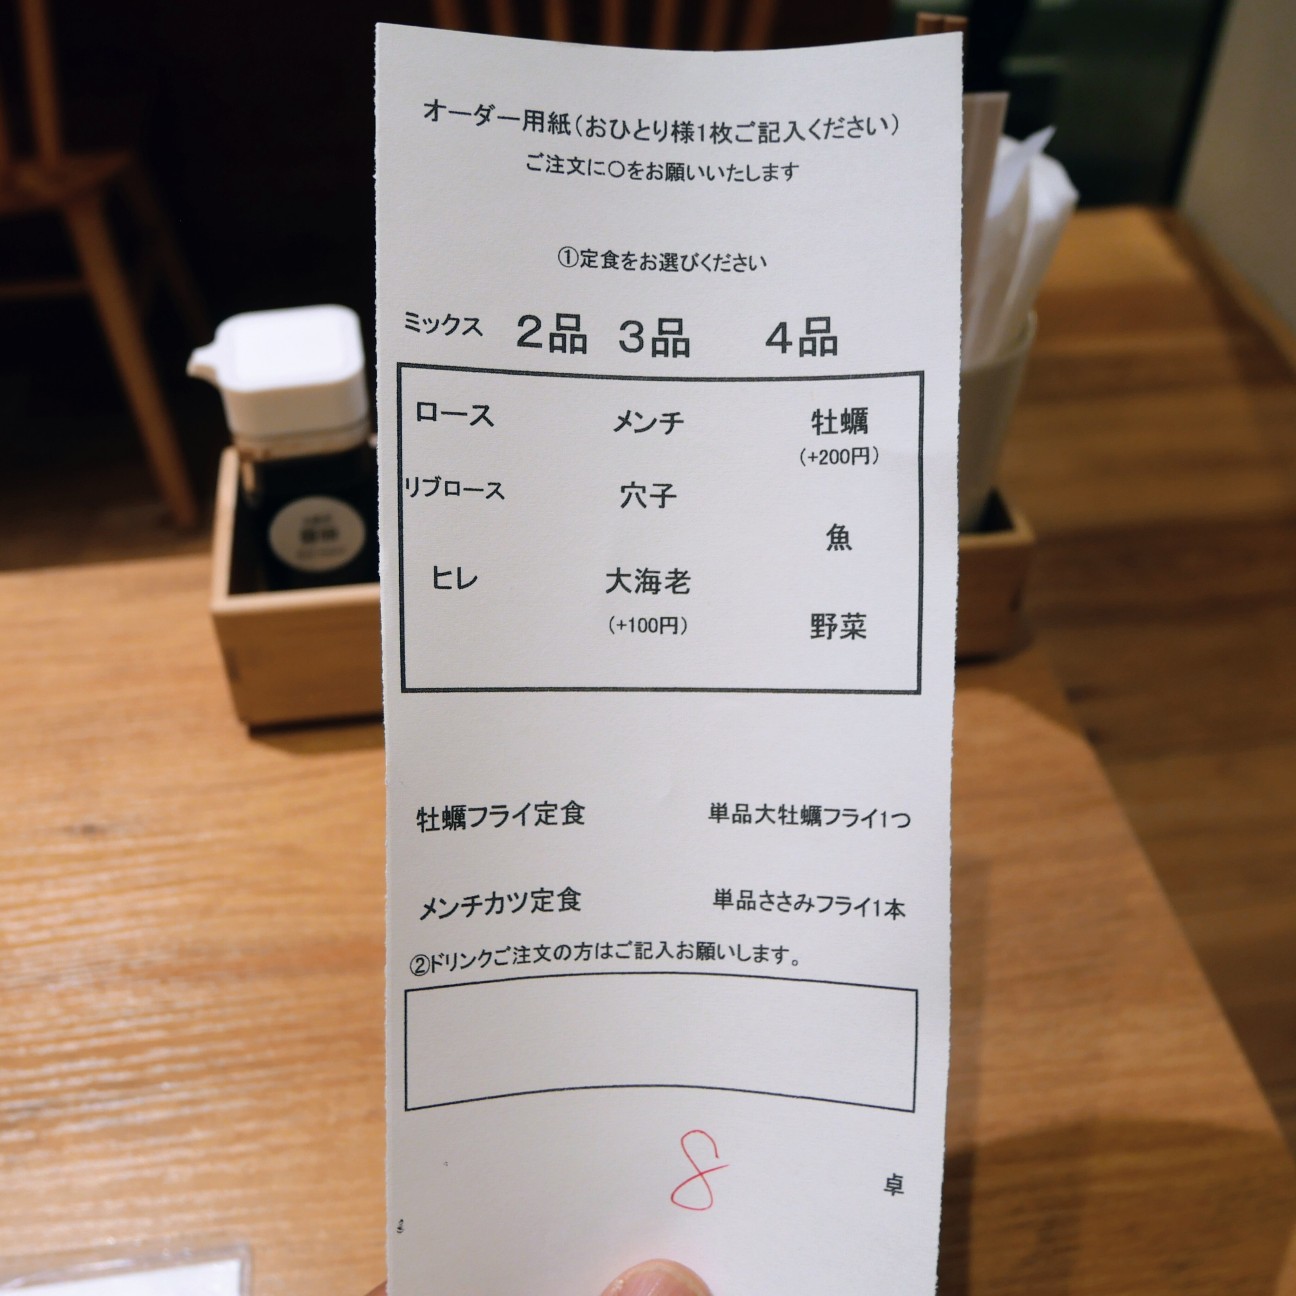 オーダー用紙(おひとり様1枚ご記入ください)
ご注文に〇をお願いいたします
①定食をお選びください
ミックス 2品 3品 4品
ロース メンチ 牡蠣
(+200円)
リブロース 穴子
魚
ヒレ 大海老
(+100円) 野菜
牡蠣フライ定食 単品大牡蠣フライ1つ
メンチカツ定食 単品ささみフライ1本
②ドリンクご注文の方はご記入お願いします。
8 卓